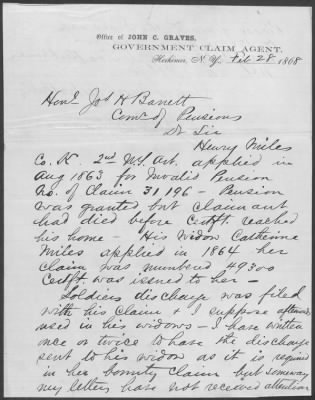 Office of JOHN C. GRAVES,
GOVERNMENT CLAIM AGENT,
Herkimer, N. Y., Feb 28 1868
Honl Jos H Barrett
Comr of Pensions
Dr Sir
Henry Miles
Co. K. 2nd N.Y. Art. applied in
Aug 1863 for Invalid Pension
No. of Claim 31,196 - Pension
was granted but claimant
had died before Certft. reached
his home - His widow Catherine
Miles applied in 1864 her
claim was numberd 49300
Certft. was issued to her -
Soldiers discharge was filed
with his claim & I suppose afterwds
used in his widows - I have written
once or twice to have the discharge
sent to his widow as it is required
in her bounty claim but someway
my letters have not received attention